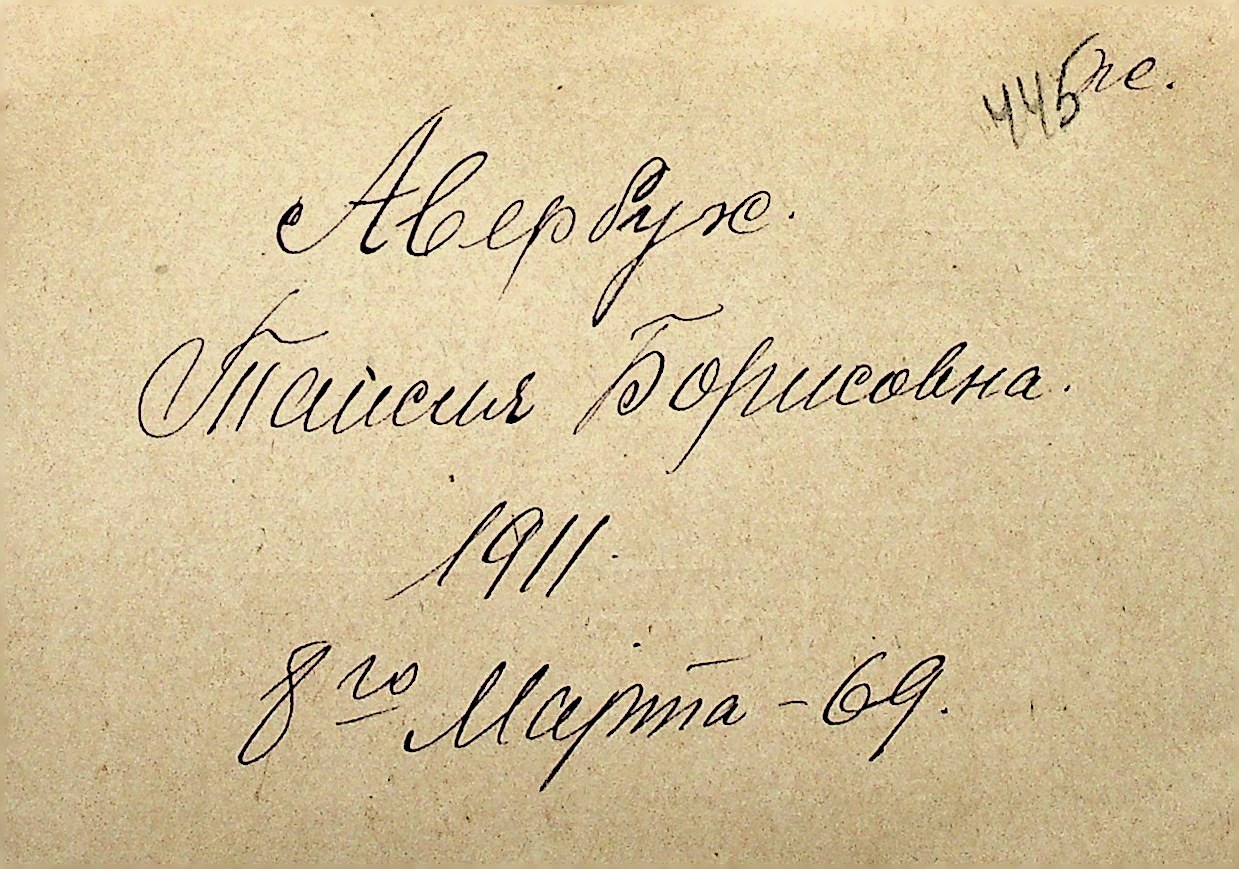 445 пе.
Авербух.
Таисия Борисовна.
1911.
8го Марта - 69.